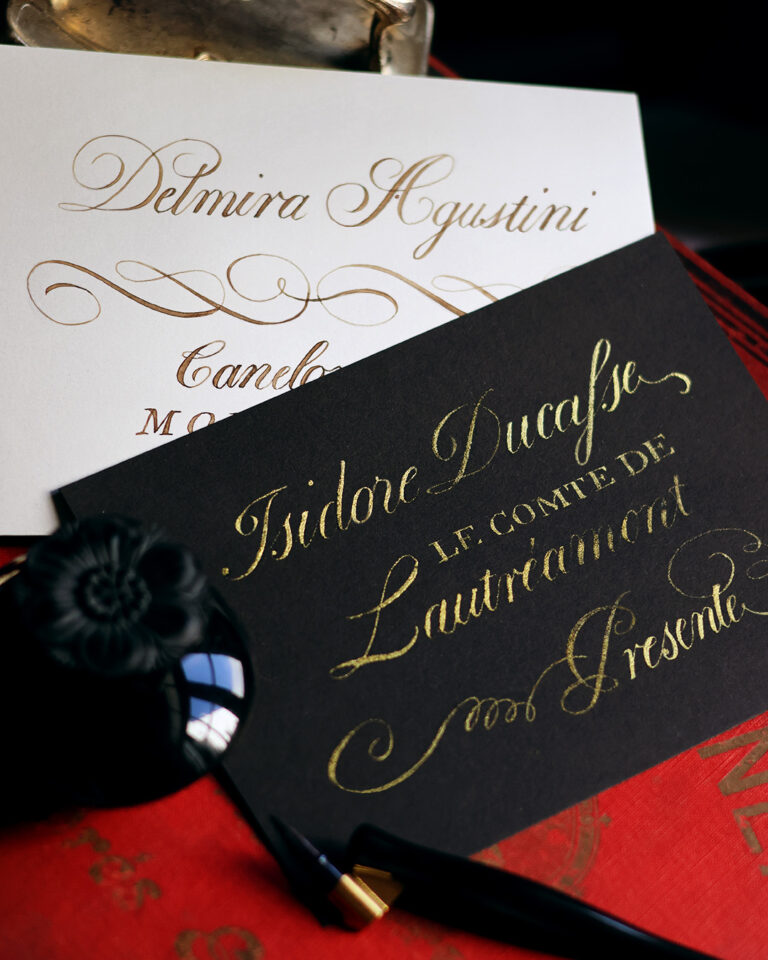 Delmira Agustini
Isidore Ducasse
LE COMTE DE
Lautréamont
Presente